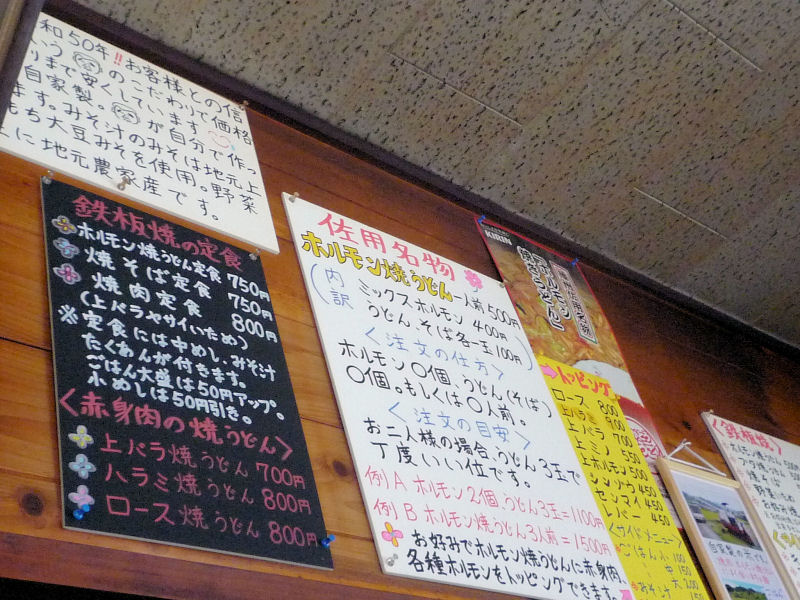 和50年!!お客様との信
いう のこだわりで価格
りまで安くしています
自家製。 が自分で作っ
ます。みそ汁のみそは地元上
もち大豆みそを使用。野菜
に地元農家産です。
鉄板焼の定食
ホルモン焼うどん定食 750円
焼そば定食 750円
焼肉定食 800円
(上バラヤサイいため)
※定食には中めし、みそ汁
たくあんが付きます。
ごはん大盛は50円アップ。
小めしは50円引き。
<赤身肉の焼うどん>
上バラ焼うどん 700円
ハラミ焼うどん 800円
ロース焼うどん 800円
佐用名物
ホルモン焼うどん一人前500円
(内訳 ミックスホルモン 400円
うどん、そば各一玉 100円)
<注文の仕方>
ホルモン〇個、うどん(そば)
〇個。もしくは〇人前。
<注文の目安>
お二人様の場合、うどん3玉で
丁度いい位です。
例A ホルモン2個、うどん3玉=1100円
例B ホルモン焼うどん3人前=1500円
お好みでホルモン焼うどんに赤身肉、
各種ホルモンをトッピングできます。
KIRIN
トッピング
ロース 800
上ハラミ 900
上バラ 700
上ミノ 550
上ホルモン 500
シンゾウ 450
センマイ 450
レバー 450
<サイドメニュー>
ごはん小 100
中 150
大 200
みそ汁 150
<鉄板焼>
自家製の米です